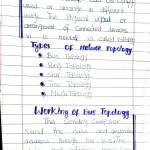 used or arrange in different
ways. The Physical layout or
arrangement of Connected devices
in a network is called topology
Types of Network Topology
Bus Topology
Ring Topology
Star Topology
Tree Topology
Mesh Topology
Working of Bus Topology
The Sending Computer
Send the data and destination
address through the